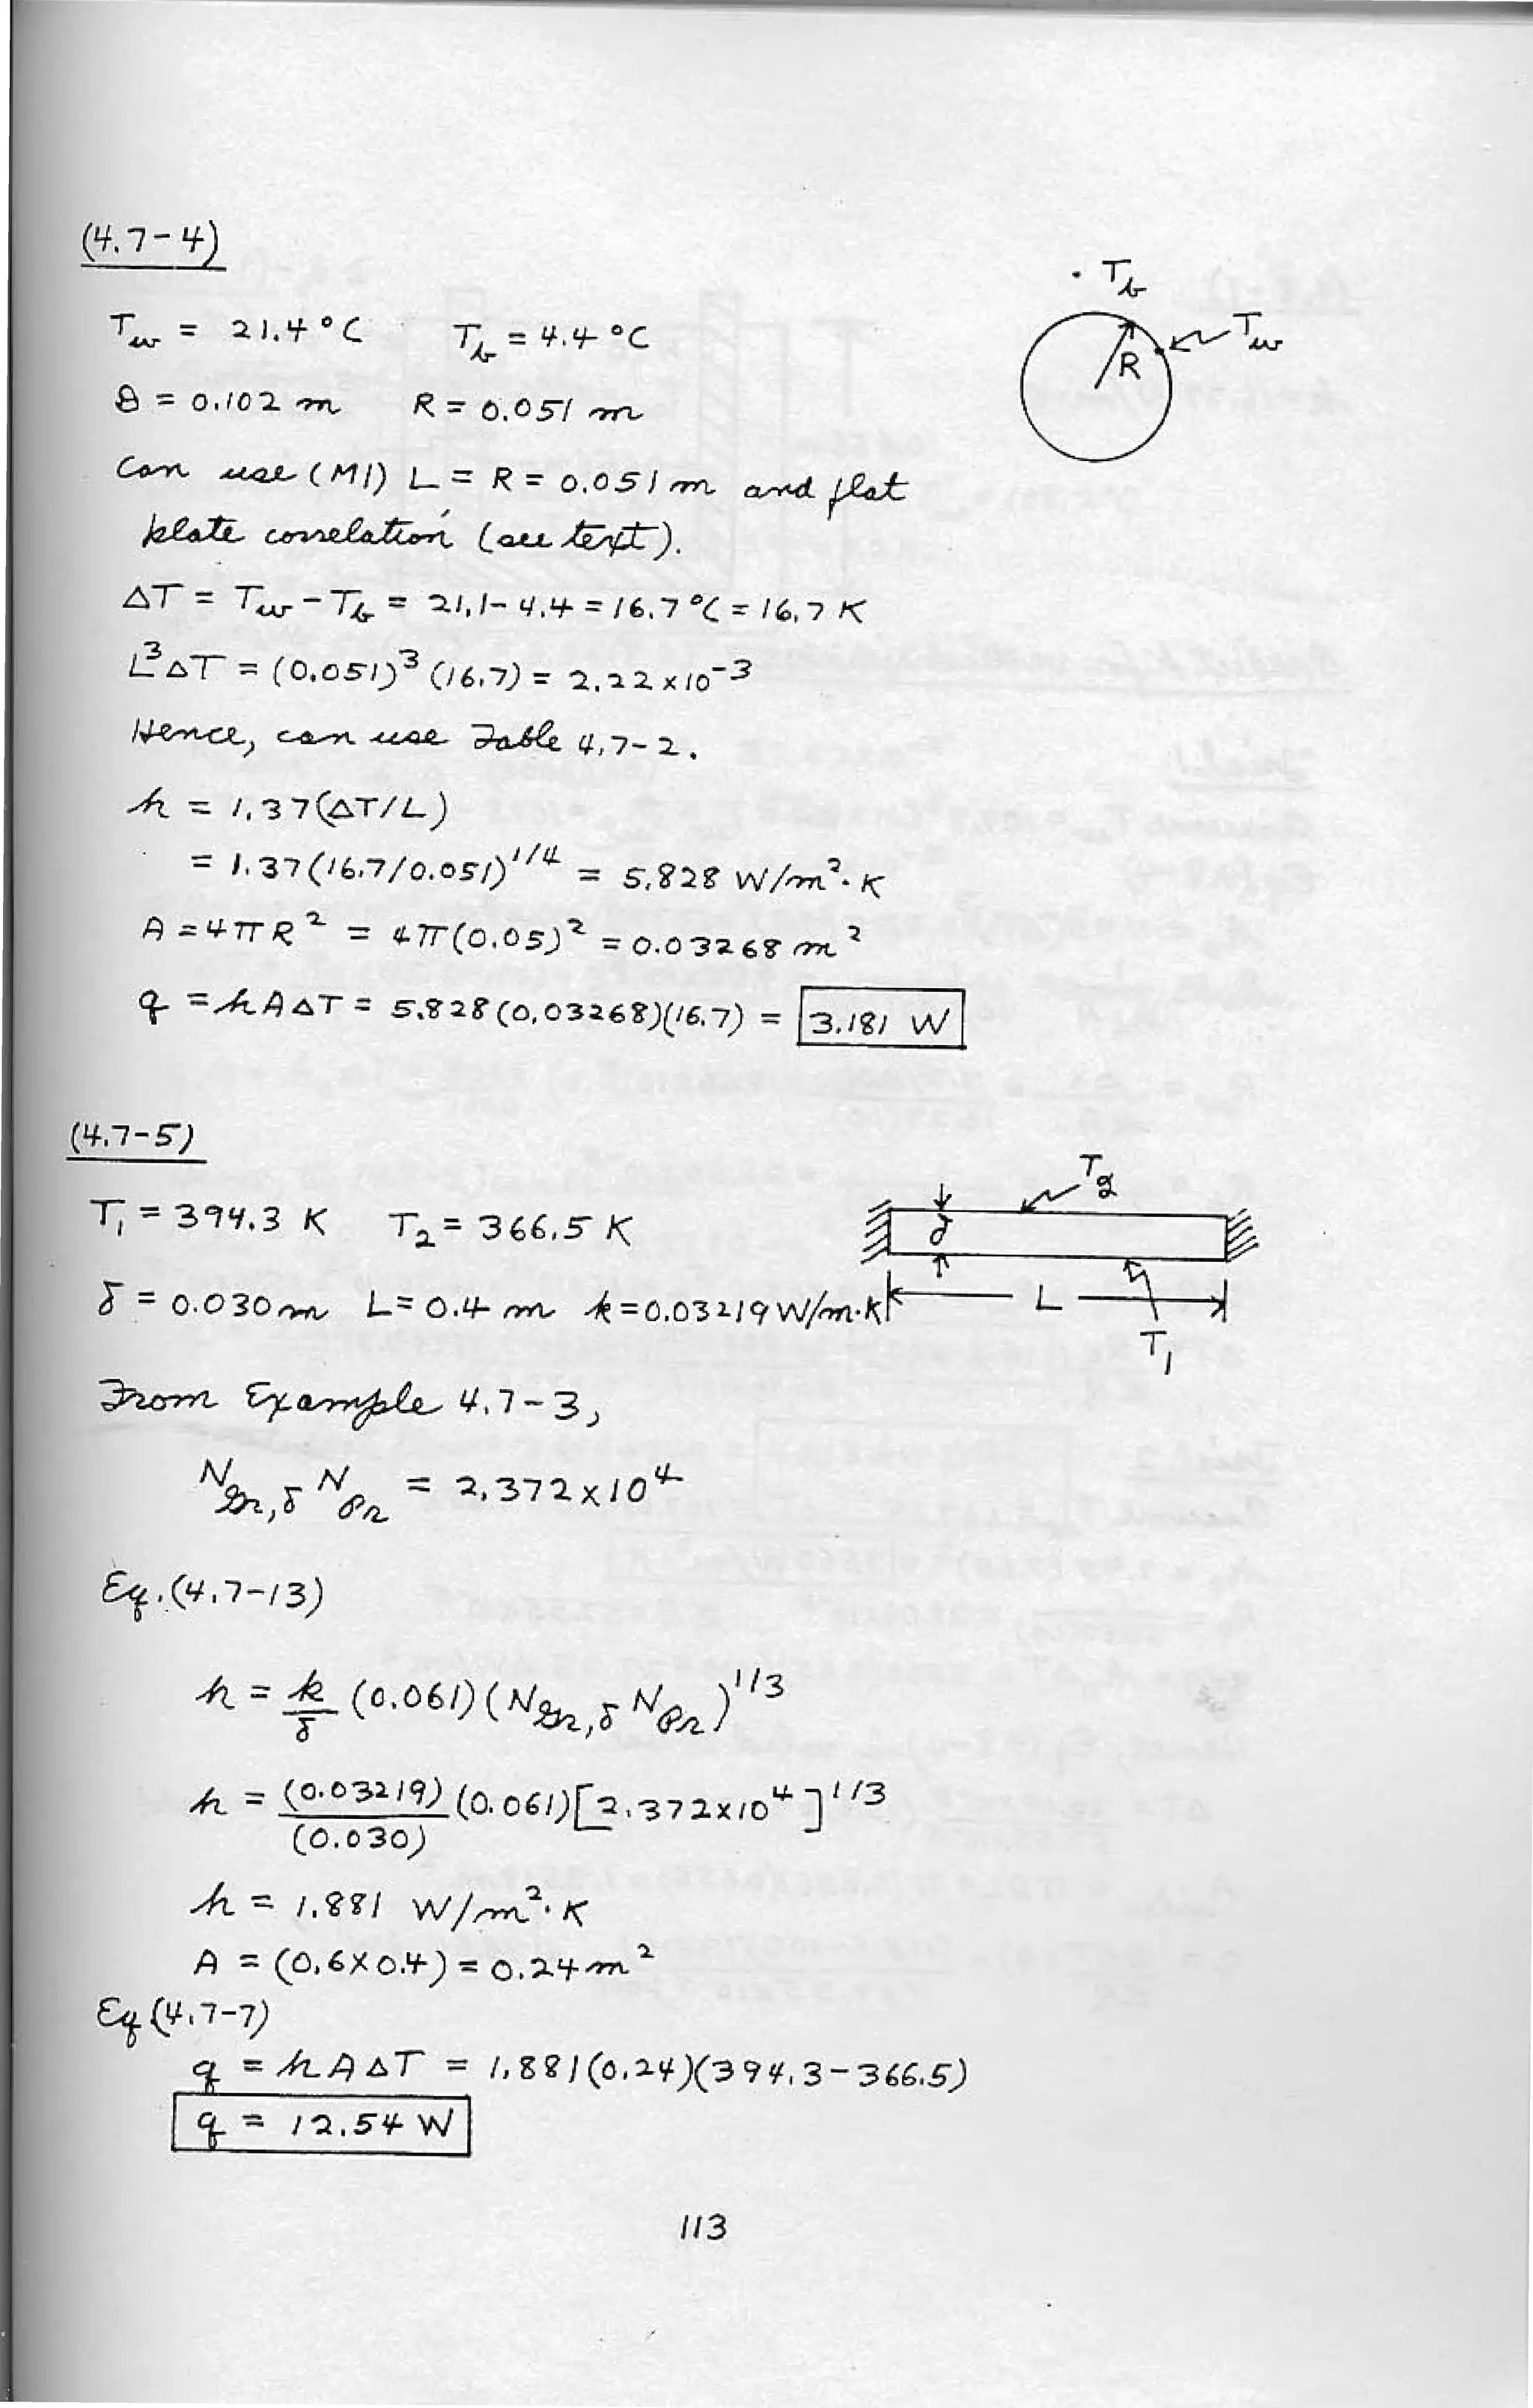 (4.7-4)
· T_b
T_w = 21.4 °C T_b = 4.4 °C
T_w
R
D = 0.102 m R = 0.051 m
Can use (M1) L = R = 0.051 m and flat
plate correlation (see text).
ΔT = T_w - T_b = 21.1 - 4.4 = 16.7 °C = 16.7 K
L³ΔT = (0.051)³ (16.7) = 2.22 x 10⁻³
Hence, can use Table 4.7-2.
h = 1.37(ΔT/L)
= 1.37(16.7/0.051)^1/4 = 5.828 W/m²·K
A = 4πR² = 4π(0.05)² = 0.03268 m²
q = hAΔT = 5.828(0.03268)(16.7) = 3.181 W
(4.7-5)
T₂
T₁ = 394.3 K T₂ = 366.5 K
δ
δ = 0.030 m L = 0.4 m k = 0.03219 W/m·K
L
T₁
From Example 4.7-3,
N_Gr,δ N_Pr = 2.372 x 10⁴
Eq. (4.7-13)
h = k/δ (0.061)(N_Gr,δ N_Pr)^1/3
h = (0.03219)/(0.030) (0.061)[2.372x10⁴]^1/3
h = 1.881 W/m²·K
A = (0.6 x 0.4) = 0.24 m²
Eq (4.7-7)
q = hAΔT = 1.881(0.24)(394.3-366.5)
q = 12.54 W
113